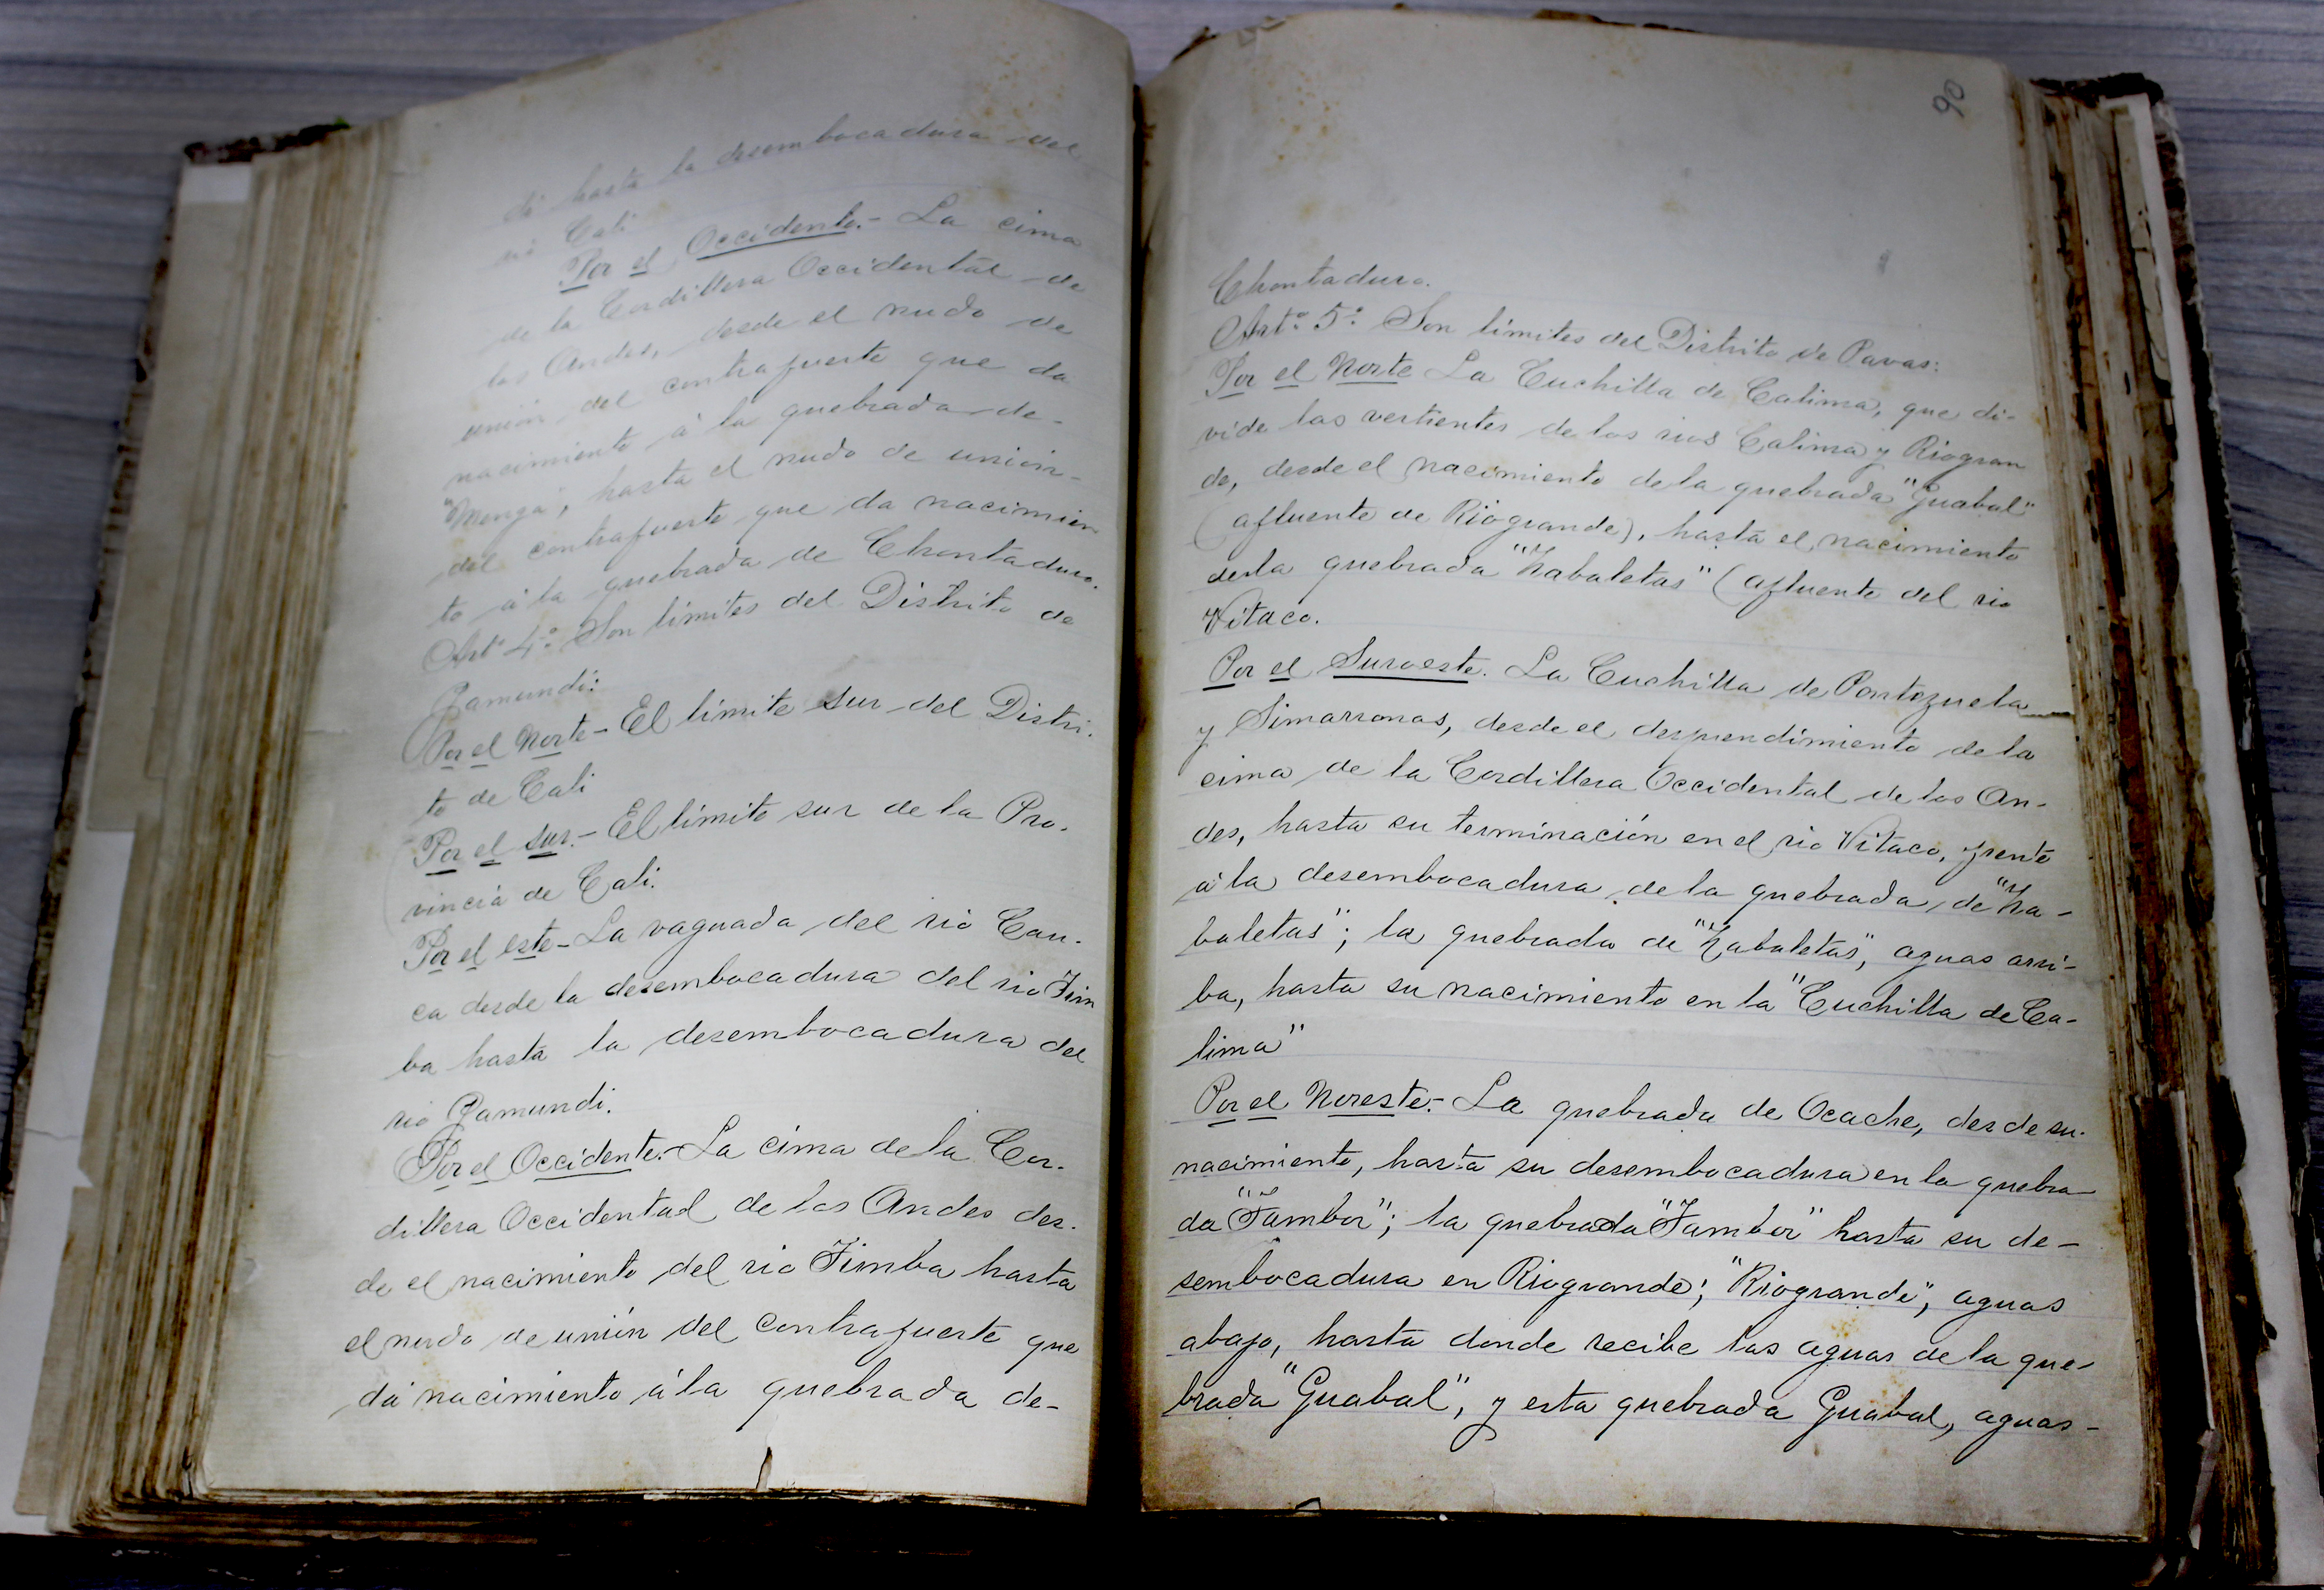 di hasta la desembocadura del
rio Cali
Por el Occidente.- La cima
de la Cordillera Occidental de
los Andes, desde el nudo de
unión del contrafuerte que da
nacimiento á la quebrada de-
"Menga", hasta el nudo de unión-
del contrafuerte que da nacimien
to á la quebrada de Chontaduro.
Artº 4º Son límites del Distrito de
Jamundí:
Por el Norte- El límite sur del Distri-
to de Cali
Por el sur.- El límite sur de la Pro-
vincia de Cali.
Por el este- La vaguada del rio Cau-
ca desde la desembocadura del rio Tim
ba hasta la desembocadura del
rio Jamundi.
Por el Occidente.- La cima de la Cor-
dillera Occidental de los Andes des-
de el nacimiento del rio Timba hasta
el nudo de unión del contrafuerte que
dá nacimiento á la quebrada de-
90
Chontaduro.
Artº 5º Son límites del Distrito de Pavas:
Por el Norte La Cuchilla de Calima, que di-
vide las vertientes de los rios Calima y Riogran
de, desde el nacimiento de la quebrada "Guabal"
(afluente de Riogrande), hasta el nacimiento
de la quebrada "Zabaletas" (afluente del rio
Vitaco.
Por el Suroeste. La Cuchilla de Pontezuela
y Simarronas, desde el desprendimiento de la
cima de la Cordillera Occidental de los An-
des, hasta su terminación en el rio Vitaco, frente
á la desembocadura de la quebrada de "Za-
baletas"; la quebrada de "Zabaletas", aguas arri-
ba, hasta su nacimiento en la "Cuchilla de Ca-
lima"
Por el Noreste.- La quebrada de Ocache, desde su-
nacimiento, hasta su desembocadura en la quebra
da "Tambor"; la quebrada "Tambor" hasta su de-
sembocadura en Riogrande; "Riogrande", aguas
abajo, hasta donde recibe las aguas de la que-
brada "Guabal", y esta quebrada Guabal, aguas-